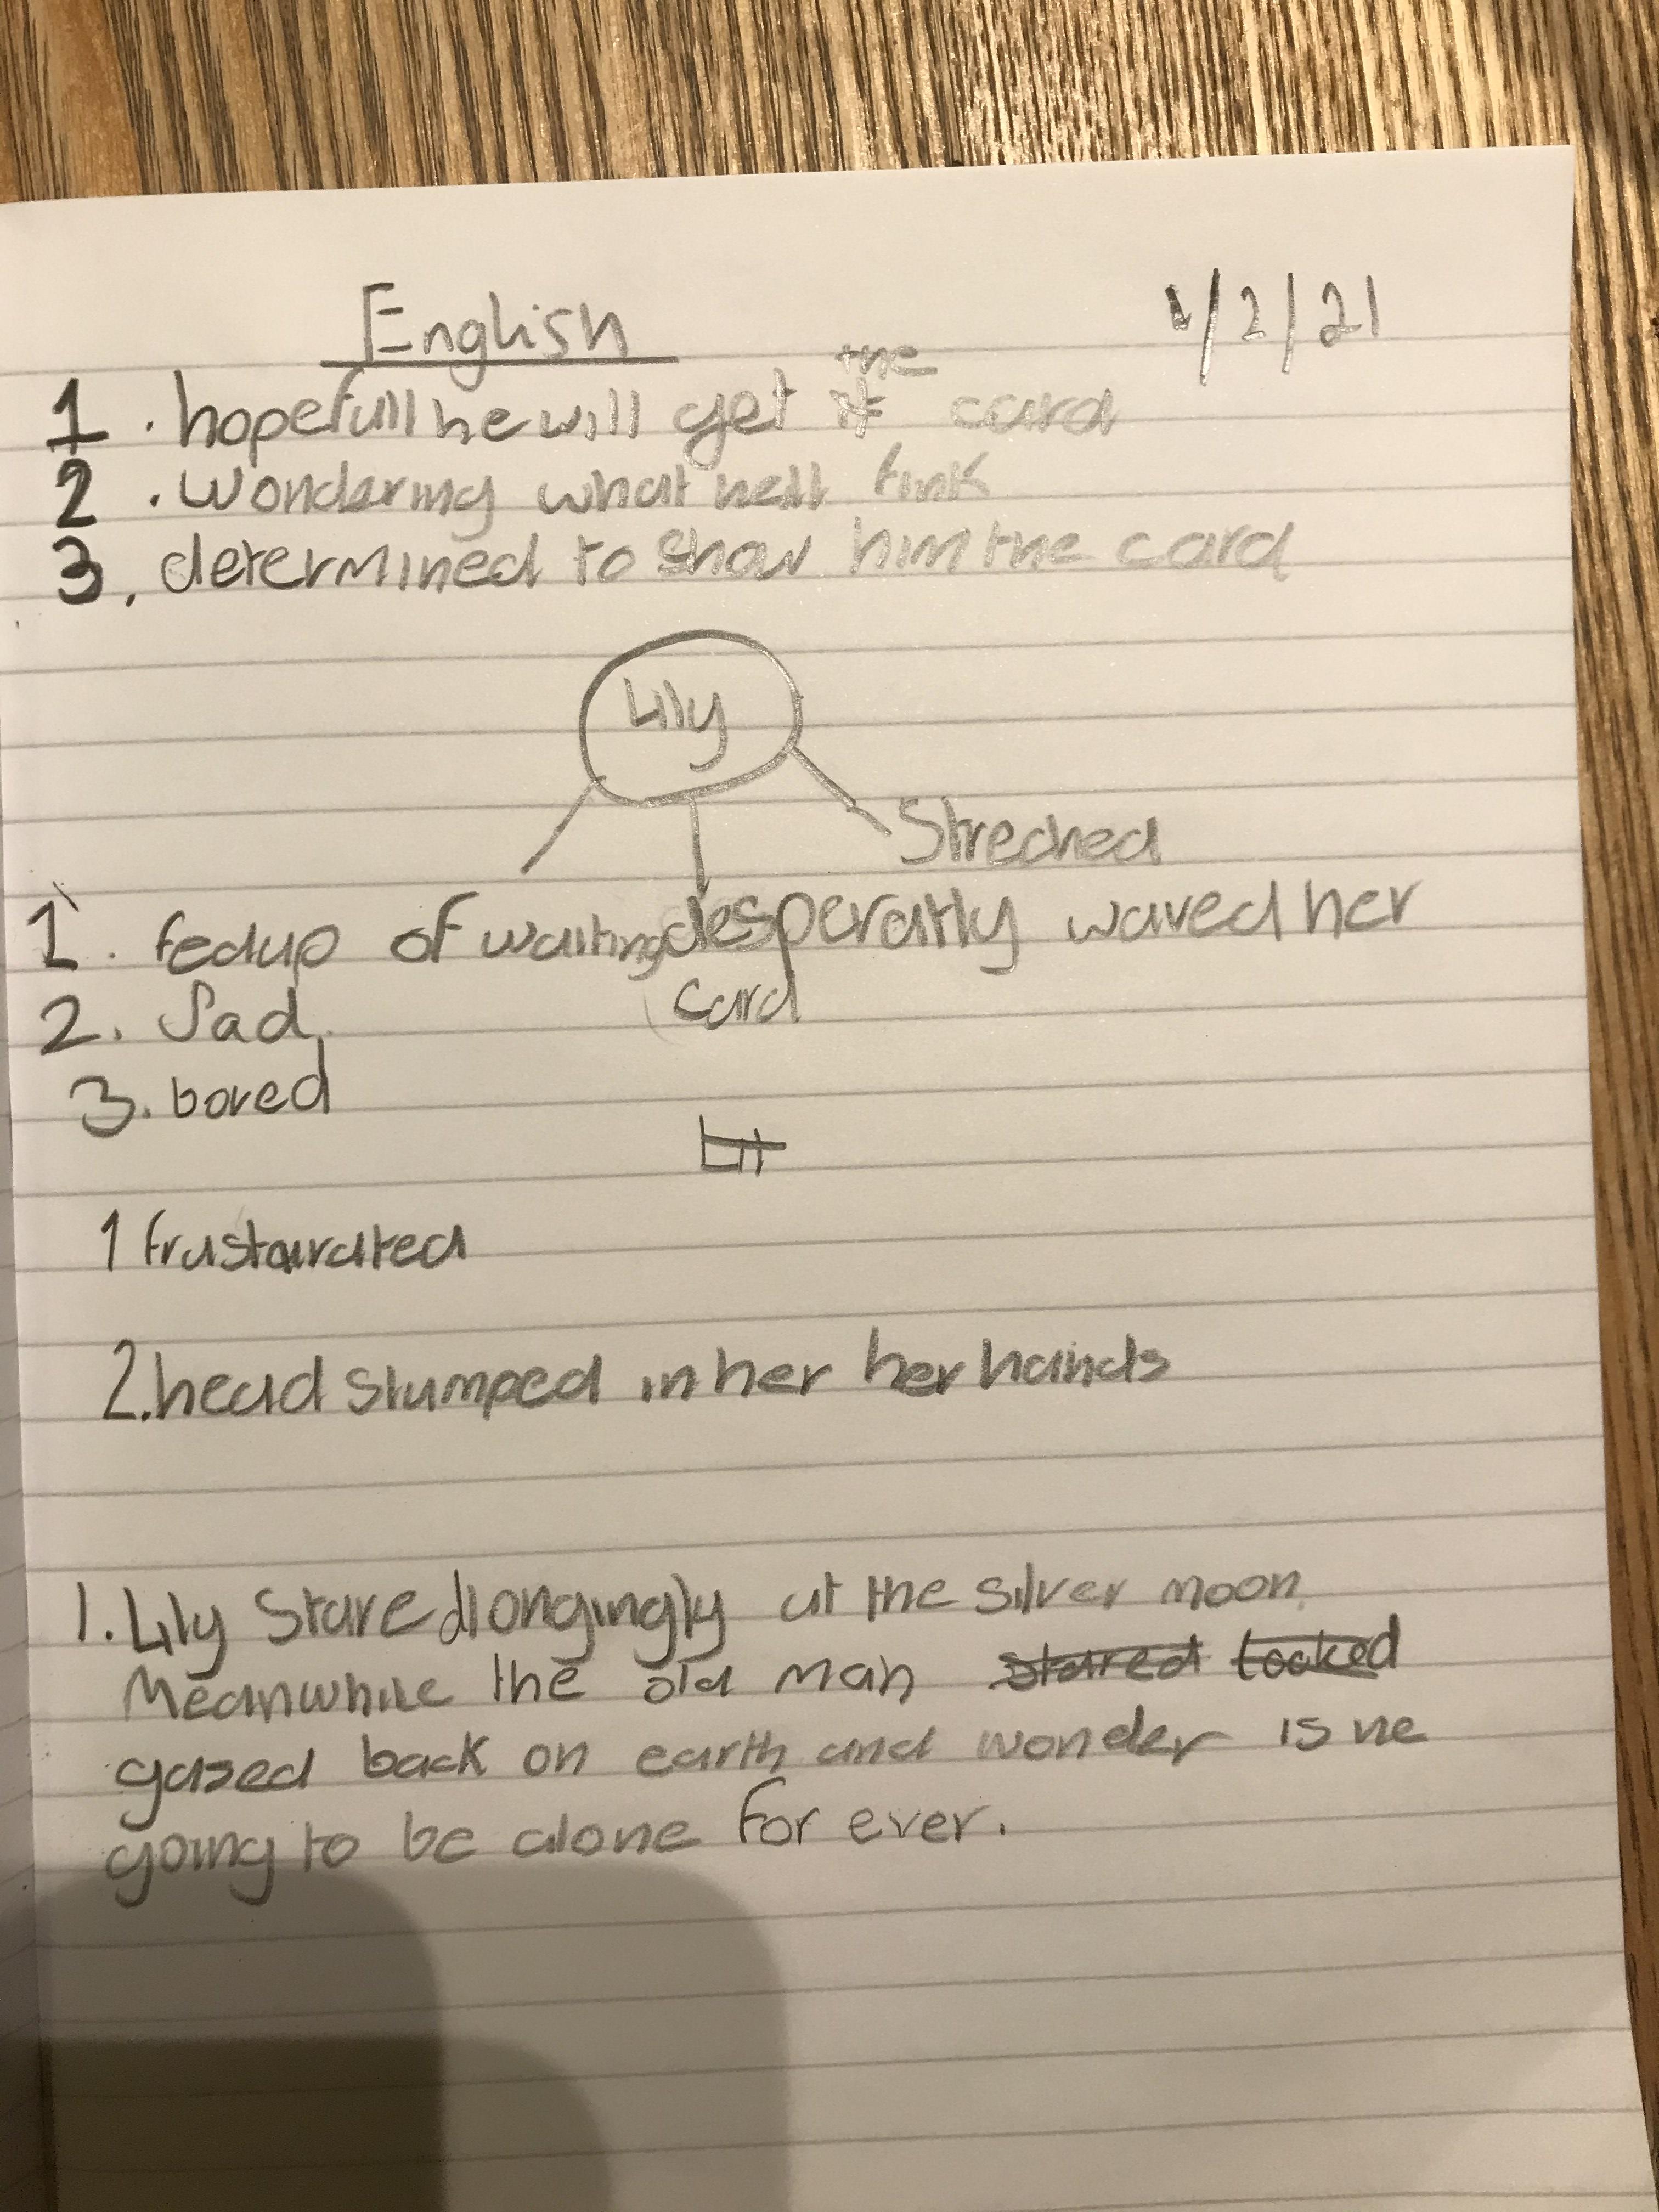 English
1/2/21
the
1. hopefull he will get it card
2. wondering what hell tink
3. determined to show him the card
Lily
Streched
1. fedup of waiting desperatly waved her
card
2. Sad
3. bored
Lit
1 frustarated
2. head slumped in her her hands
1. Lily Stared longingly at the silver moon.
Meanwhile the old man stared looked
gazed back on earth and wonder is he
going to be alone for ever.